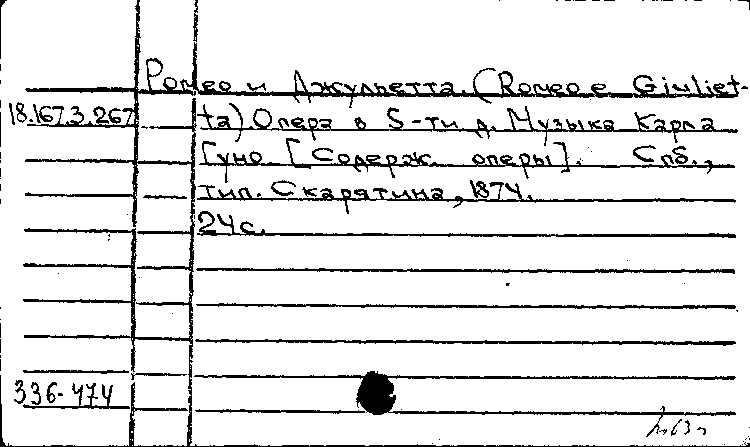 Ромео и Джульетта. (Romeo e Giuliet-
18.167.3.267 ta) Опера в 5-ти д. Музыка Карла
Гуно [Содерж. оперы]. Спб.,
тип. Скарятина, 1874.
24 с.
336-474